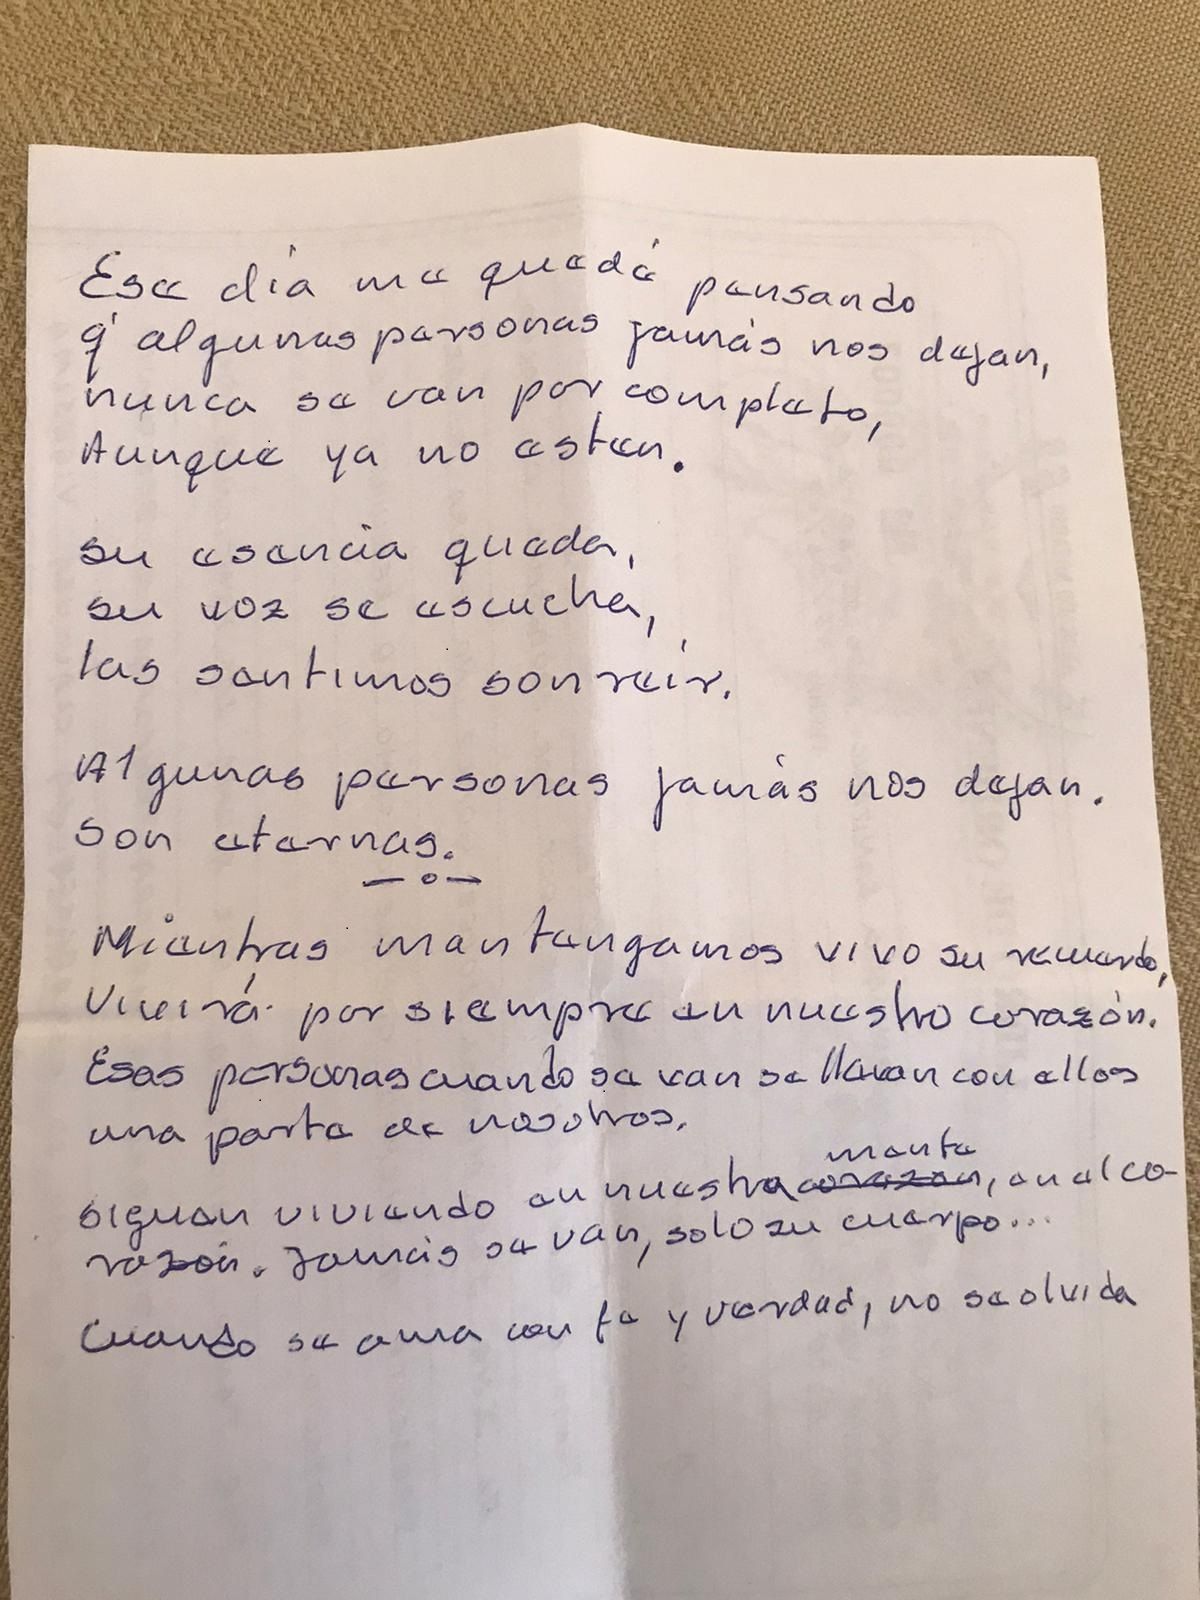 Ese día me quedé pensando
q' algunas personas jamás nos dejan,
nunca se van por completo,
Aunque ya no esten.
su esencia queda,
su voz se escucha,
las sentimos sonreír.
Algunas personas jamás nos dejan.
son eternas.
—o—
Mientras mantengamos vivo su recuerdo,
Vivirá por siempre en nuestro corazón.
Esas personas cuando se van se llevan con ellos
una parte de nosotros.
mente
siguen viviendo en nuestra corazon, en el co-
razón. Jamás se van, solo su cuerpo...
Cuando se ama con fe y verdad, no se olvida